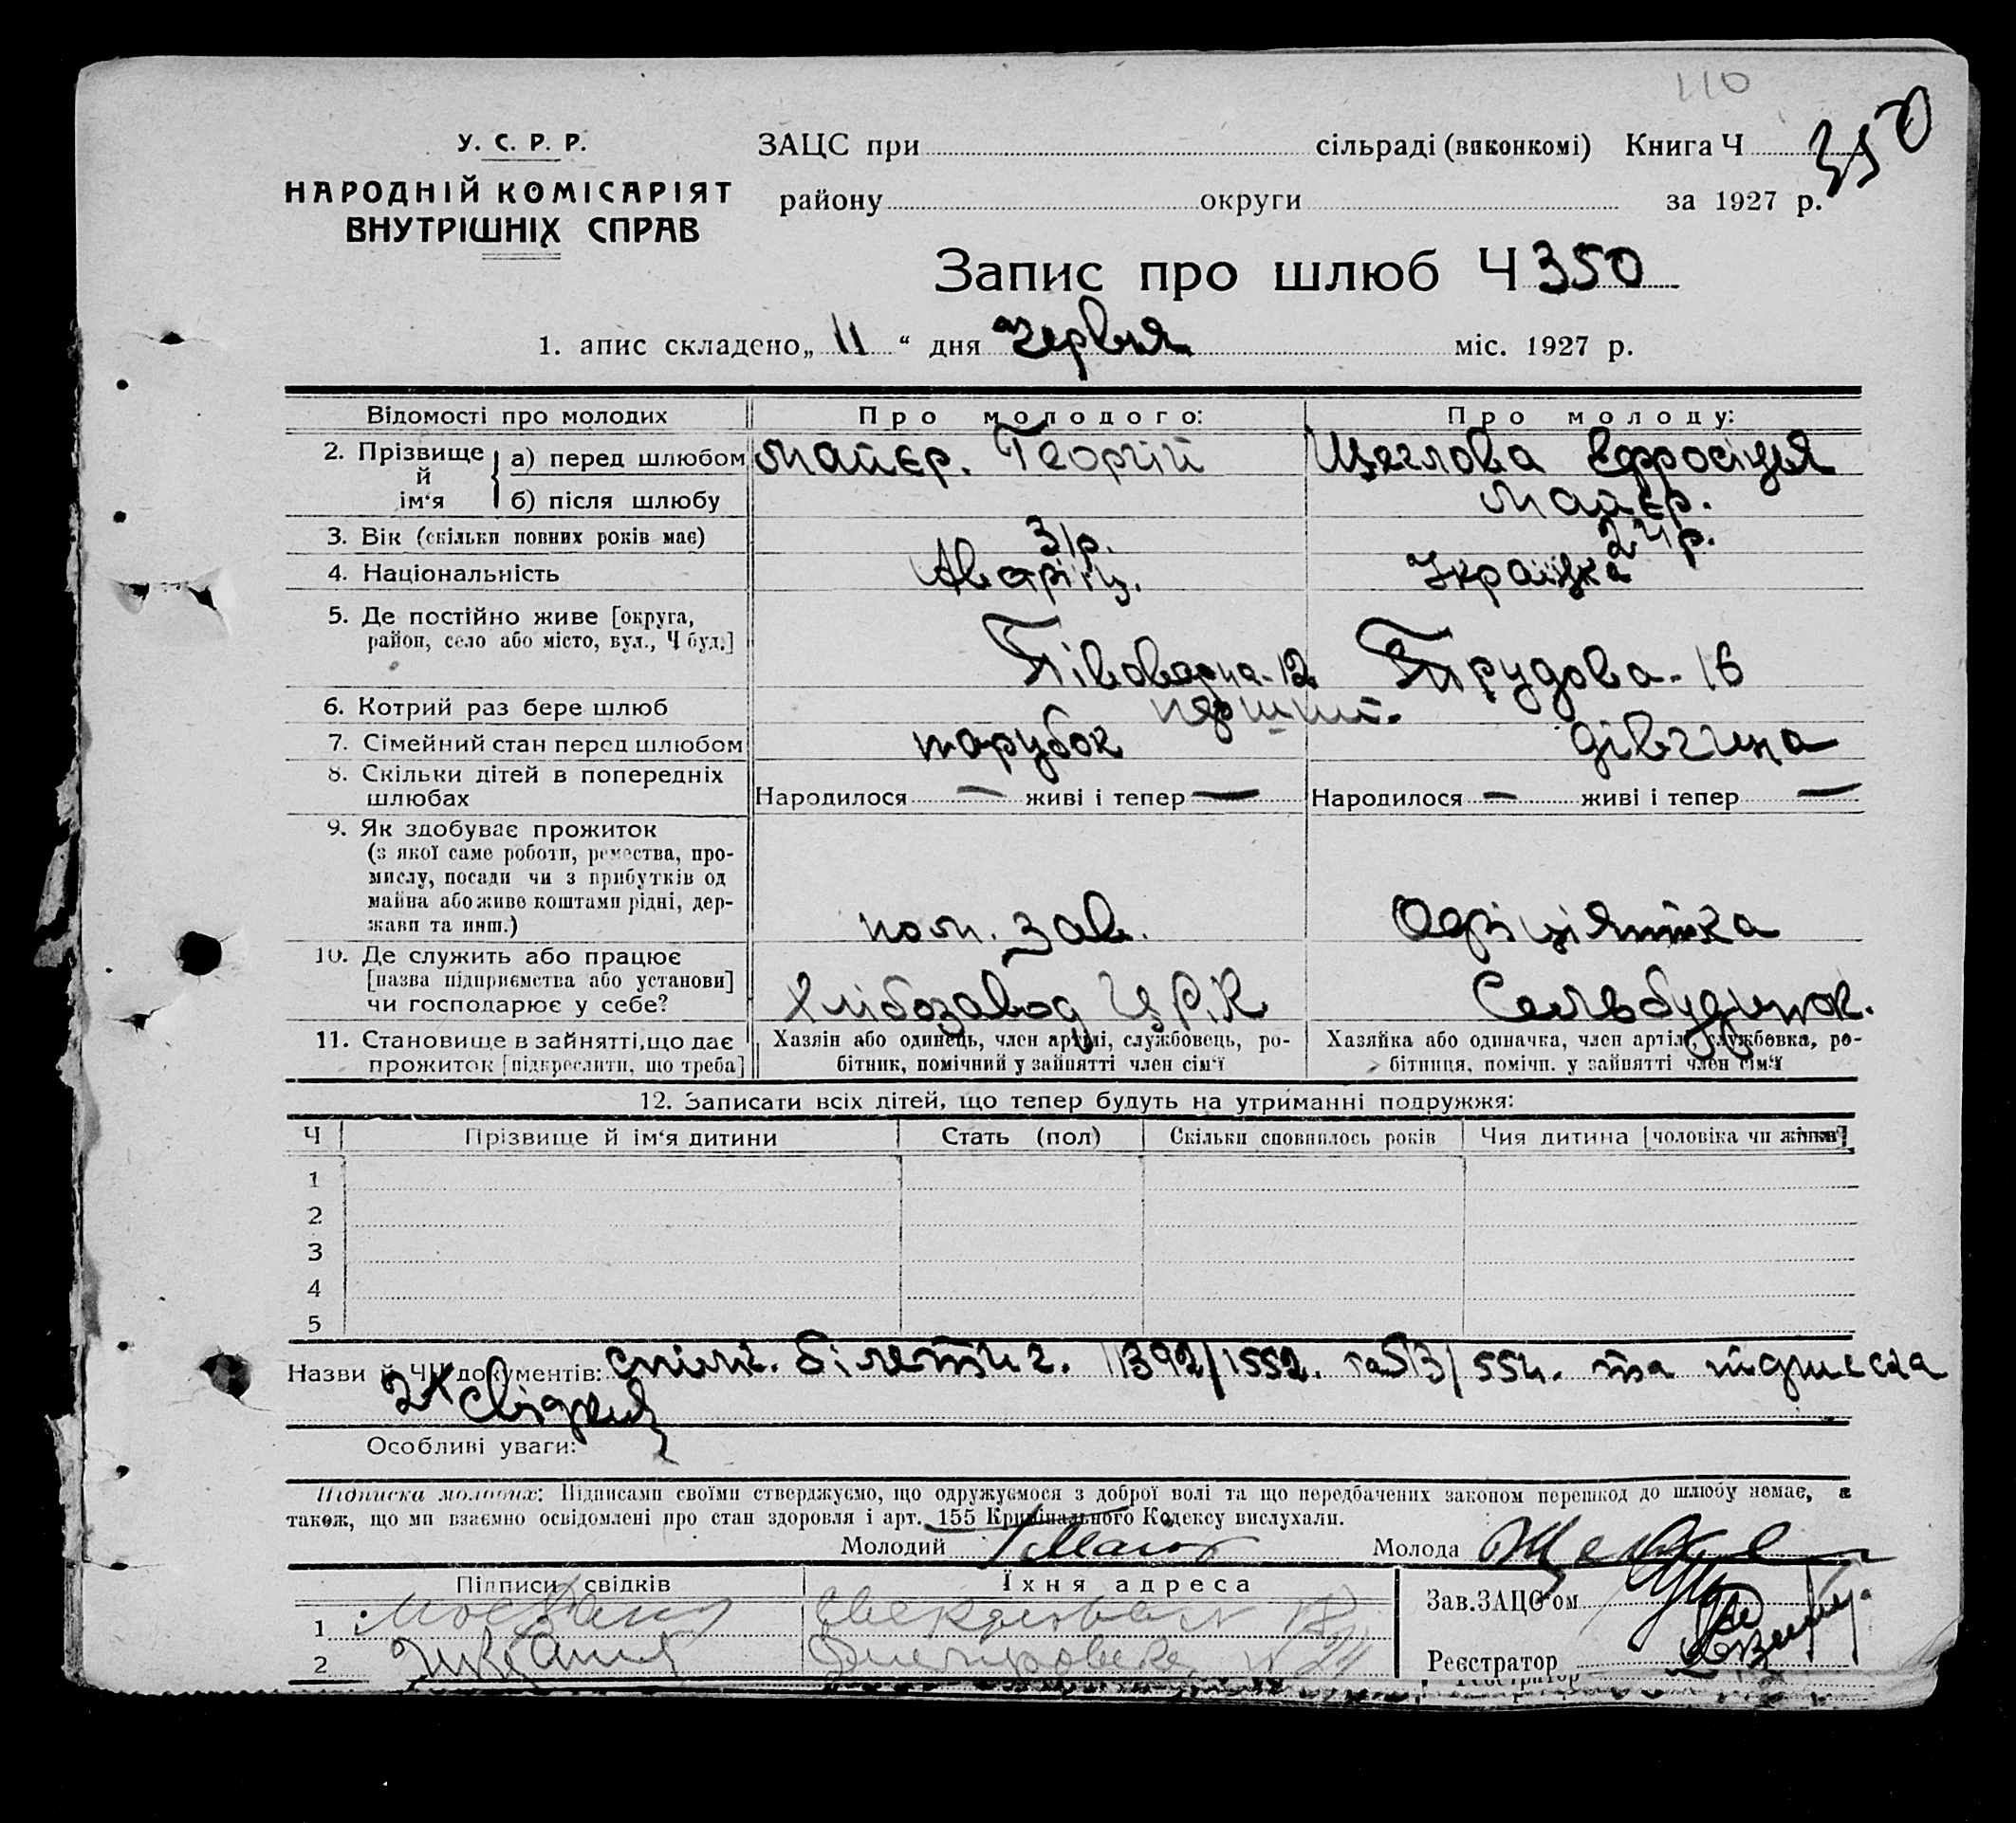 110
350
У. С. Р. Р.
НАРОДНІЙ КОМІСАРІЯТ
ВНУТРІШНІХ СПРАВ
ЗАЦС при сільраді (виконкомі) Книга Ч
району округи за 1927 р.
Запис про шлюб Ч 350
1. апис складено „ 11 “ дня червня міс. 1927 р.
Відомості про молодих Про молодого: Про молоду:
2. Прізвище й ім‘я а) перед шлюбом Майєр. Георгій Щеглова Єфросінія
б) після шлюбу Майєр.
3. Вік (скільки повних років має) 31р. 24р.
4. Національність Українка
5. Де постійно живе [округа,
район, село або місто, вул., Ч буд.] Півоварна-12 Трудова-16
6. Котрий раз бере шлюб перший.
7. Сімейний стан перед шлюбом парубок дівчина
8. Скільки дітей в попередніх
шлюбах Народилося — живі і тепер — Народилося — живі і тепер —
9. Як здобуває прожиток
(з якої саме роботи, ремества, про-
мислу, посади чи з прибутків од
майна або живе коштами рідні, дер-
жави та инш.) пом. зав. Офіціянтка
10. Де служить або працює
[назва підприємства або установи]
чи господарює у себе? Хлібозавод ЦРК Сельбудинок.
11. Становище в зайнятті, що дає
прожиток [підкреслити, що треба]
Хазяін або одинець, член артілі, службовець, ро-
бітник, помічний у зайнятті член сім‘ї
Хазяйка або одиначка, член артілі, службовка, ро-
бітниця, помічн. у зайнятті член сім‘ї
12. Записати всіх дітей, що тепер будуть на утриманні подружжя:
Ч Прізвище й ім‘я дитини Стать (пол) Скільки сповнилось років Чия дитина [чоловіка чи жінки]
1
2
3
4
5
Назви й ЧЧ документів: спілк. білети г. 11392/1552. та 513/554. та підписка
2х свідків
Особливі уваги:
Підписка молодих: Підписами своїми стверджуємо, що одружуємося з доброї волі та що передбачених законом перешкод до шлюбу немає, а
також, що ми взаємно освідомлені про стан здоровля і арт. 155 Кримінального Кодексу вислухали.
Молодий Молода
Підписи свідків Їхня адреса Зав. ЗАЦС'ом
1
2 Реєстратор
Реєстратор